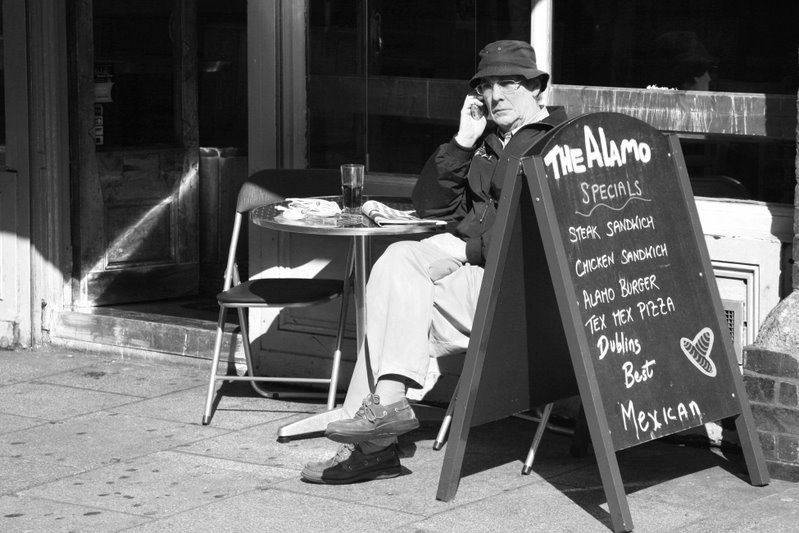 THE ALAMO
SPECIALS
STEAK SANDWICH
CHICKEN SANDWICH
ALAMO BURGER
TEX MEX PIZZA
DUBLINS
BEST
MEXICAN